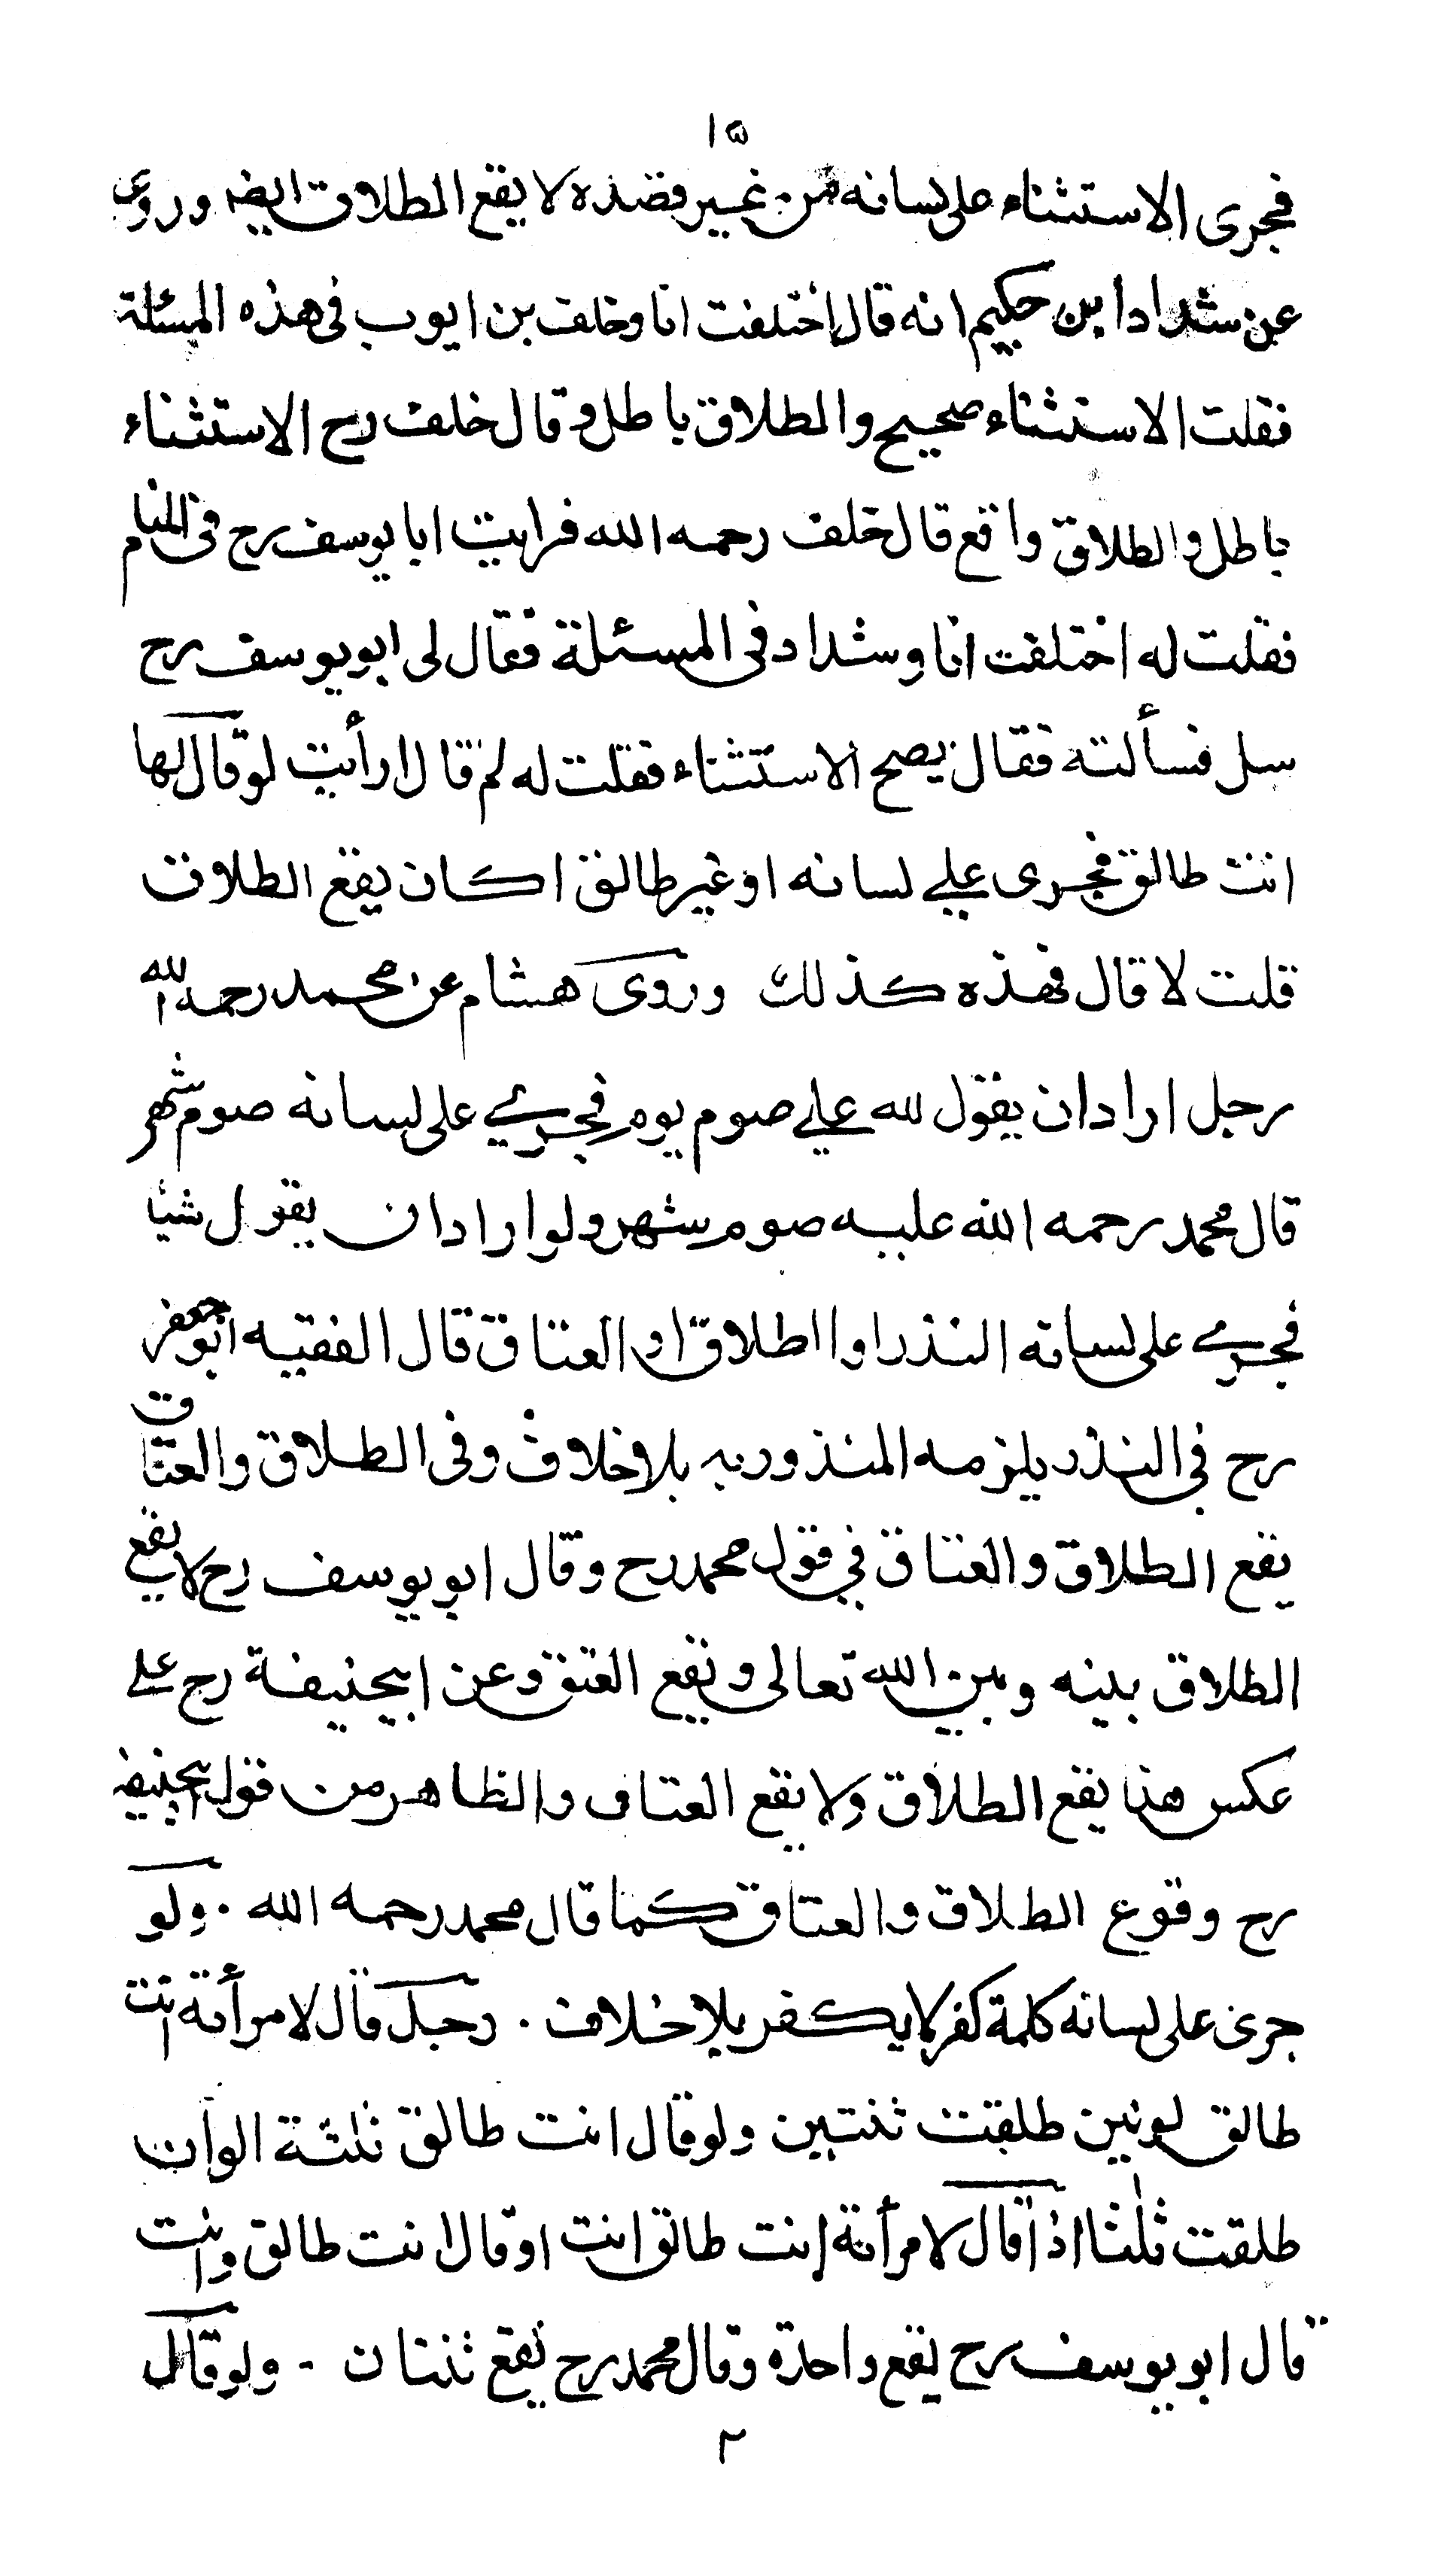 ١٥
فجرى الاستثناء على لسانه من غير قصده لا يقع الطلاق ايضا وروى
عن شداد ابن حكيم انه قال اختلفت انا وخلف بن ايوب في هذه المسئلة
فقلت الاستثناء صحيح والطلاق باطل وقال خلف رح الاستثناء
باطل والطلاق واقع قال خلف رحمه الله فرايت ابا يوسف رح في المنام
فقلت له اختلفت انا وشداد في المسئلة فقال لى ابو يوسف رح
سل فسألته فقال يصح الاستثناء فقلت له لم قال ارأيت لو قال لها
انت طالق فجرى على لسانه او غير طالق اكان يقع الطلاق
قلت لا قال فهذه كذلك وروى هشام عن محمد رحمه الله
رجل اراد ان يقول لله على صوم يوم فجرى على لسانه صوم شهر
قال محمد رحمه الله عليه صوم شهر ولو اراد ان يقول شيأ
فجرى على لسانه النذر او الطلاق او العتاق قال الفقيه ابو جعفر
رح في النذر يلزمه المنذور به بلا خلاف وفى الطلاق والعتاق
يقع الطلاق والعتاق في قول محمد رح وقال ابو يوسف رح لا يقع
الطلاق بينه وبين الله تعالى ويقع العتق وعن ابيحنيفة رح على
عكس هذا يقع الطلاق ولا يقع العتاق والظاهر من قول ابيحنيفة
رح وقوع الطلاق والعتاق كما قال محمد رحمه الله . ولو
جرى على لسانه كلمة كفر لا يكفر بلا خلاف . رجل قال لامرأته انت
طالق لونين طلقت ثنتين ولو قال انت طالق ثلثة الوان
طلقت ثلثا اذا قال لامرأته انت طالق انت او قال انت طالق وانت
قال ابو يوسف رح يقع واحدة وقال محمد رح يقع ثنتان - ولو قال
٢